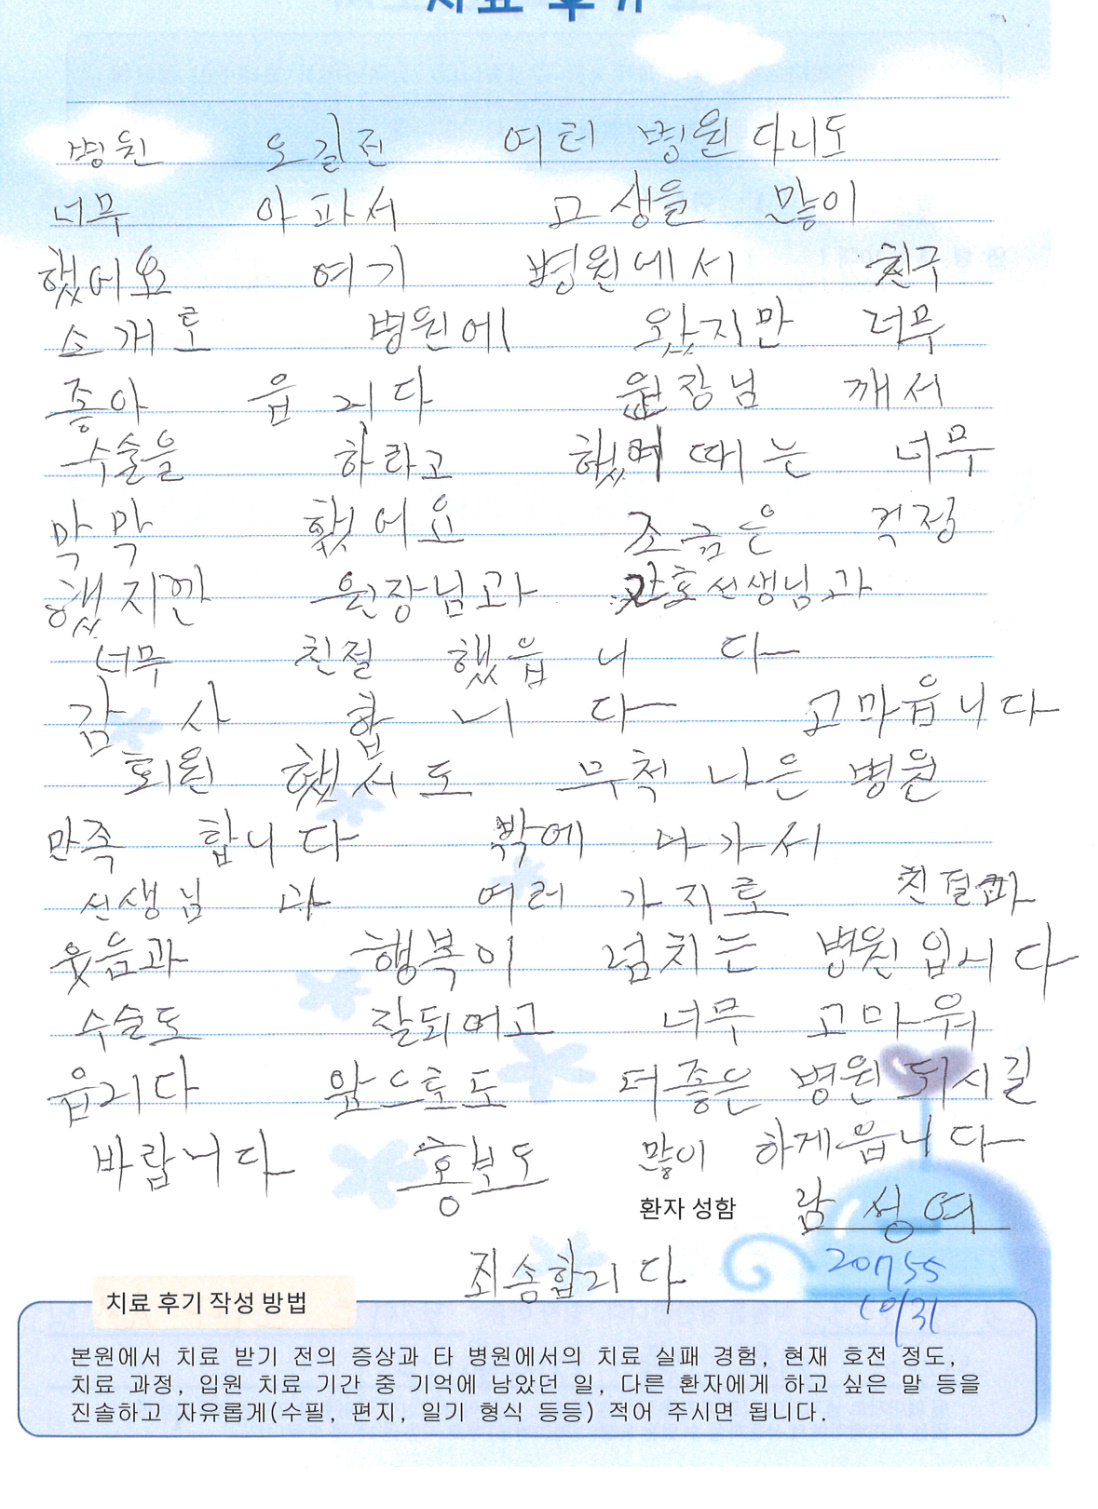 치료 후기
병원 오길전 여터 병원 다니도
너무 아파서 고생을 많이
했어요 여기 병원에서 친구
소개로 병원에 왔지만 너무
좋아 읍니다 원장님 깨서
수술을 하라고 했며 때는 너무
막막 했어요 조금은 걱정
했지만 원장님과 간호선생님과
너무 친절 했읍니다
감사 합니다 고마읍니다
퇴원 했서도 무척 나은 병원
만족 합니다 밖에 나가서
선생님 과 여러 가지로 친절과
웃음과 행복이 넘치는 병원입시다
수술도 잘되여고 너무 고마워
읍니다 앞으로도 더좋은 병원 되시길
바랍니다 홍보도 많이 하게읍니다
환자 성함 남성여
죄송합니다 20755
10/31
치료 후기 작성 방법
본원에서 치료 받기 전의 증상과 타 병원에서의 치료 실패 경험, 현재 호전 정도,
치료 과정, 입원 치료 기간 중 기억에 남았던 일, 다른 환자에게 하고 싶은 말 등을
진솔하고 자유롭게(수필, 편지, 일기 형식 등등) 적어 주시면 됩니다.